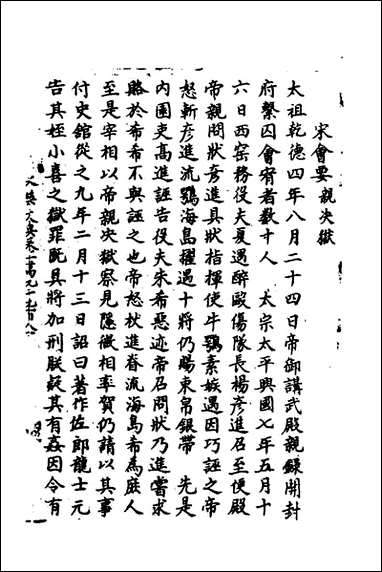 宋會要 親決獄
太祖乾德四年八月二十四日帝御講武殿親錄開封
府繫囚會宥者數十人 太宗太平興國七年五月十
六日西窑務役夫夏遇醉毆傷隊長楊彥進召至便殿
帝親問狀彥進具狀指揮使牛鶚素嫉遇因巧誣之帝
怒斬彥進流鶚海島擢遇十將仍賜束帛銀帶 先是
内園吏高進誣告役夫朱希惡迹帝召問狀乃進嘗求
賂於希希不與誣之也帝怒杖進脊流海島希為庶人
至是宰相以帝親決獄察見隱微相率賀仍請以其事
付史館從之九年二月十三日詔曰著作佐郎龍士元
告其姪小喜之獄罪既具將加刑朕疑其有姦因令有